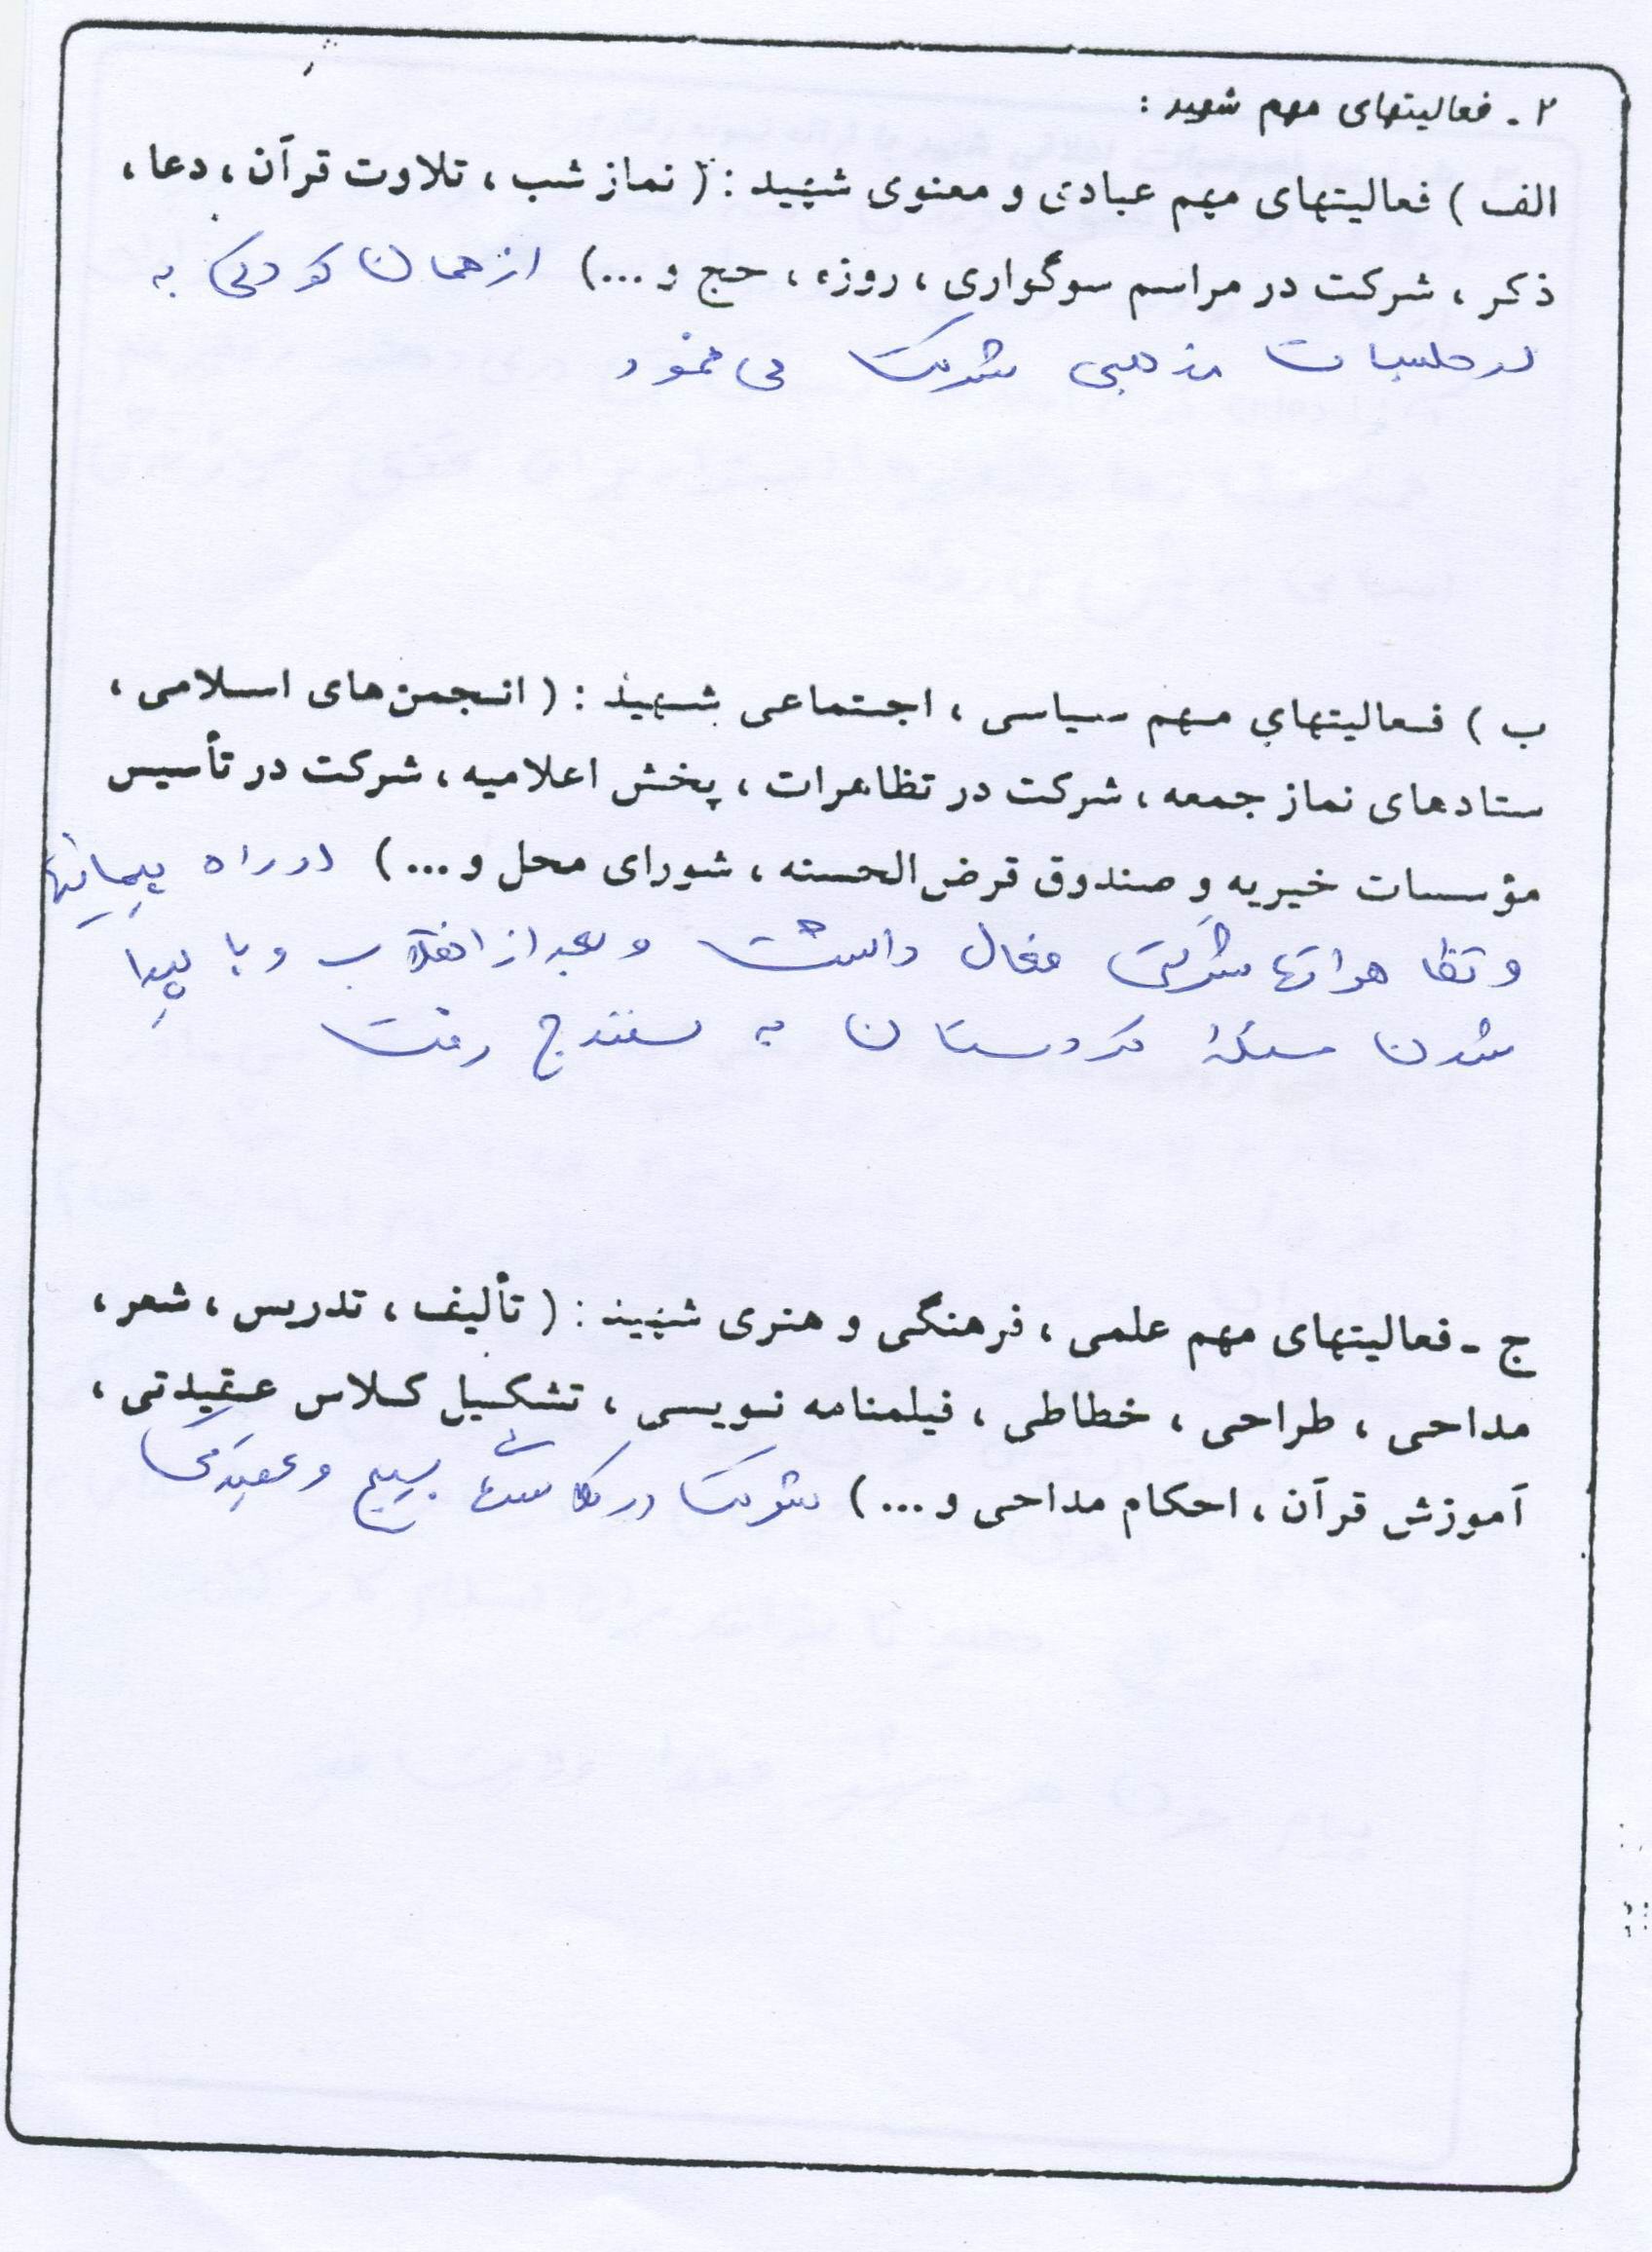 ۲ - فعالیتهای مهم شهید :
الف ) فعالیتهای مهم عبادی و معنوی شهید : ( نماز شب ، تلاوت قرآن ، دعا ،
ذکر ، شرکت در مراسم سوگواری ، روزه ، حج و ...) از همان کودکی به
در جلسات مذهبی شرکت می نمود
ب ) فعالیتهای مهم سیاسی ، اجتماعی شهید : ( انجمن‌های اسلامی ،
ستادهای نماز جمعه ، شرکت در تظاهرات ، پخش اعلامیه ، شرکت در تأسیس
مؤسسات خیریه و صندوق قرض‌الحسنه ، شورای محل و ... ) در راه پیمائیها
و تظاهراتها شرکتی فعال داشت و بعد از انقلاب و با پیدا
شدن مسئلهٔ کردستان به سنندج رفت
ج - فعالیتهای مهم علمی ، فرهنگی و هنری شهید : ( تألیف ، تدریس ، شعر ،
مداحی ، طراحی ، خطاطی ، فیلمنامه نویسی ، تشکیل کلاس عقیدتی ،
آموزش قرآن ، احکام مداحی و ... ) شرکت در کلاسهای بسیج و عقیدتی